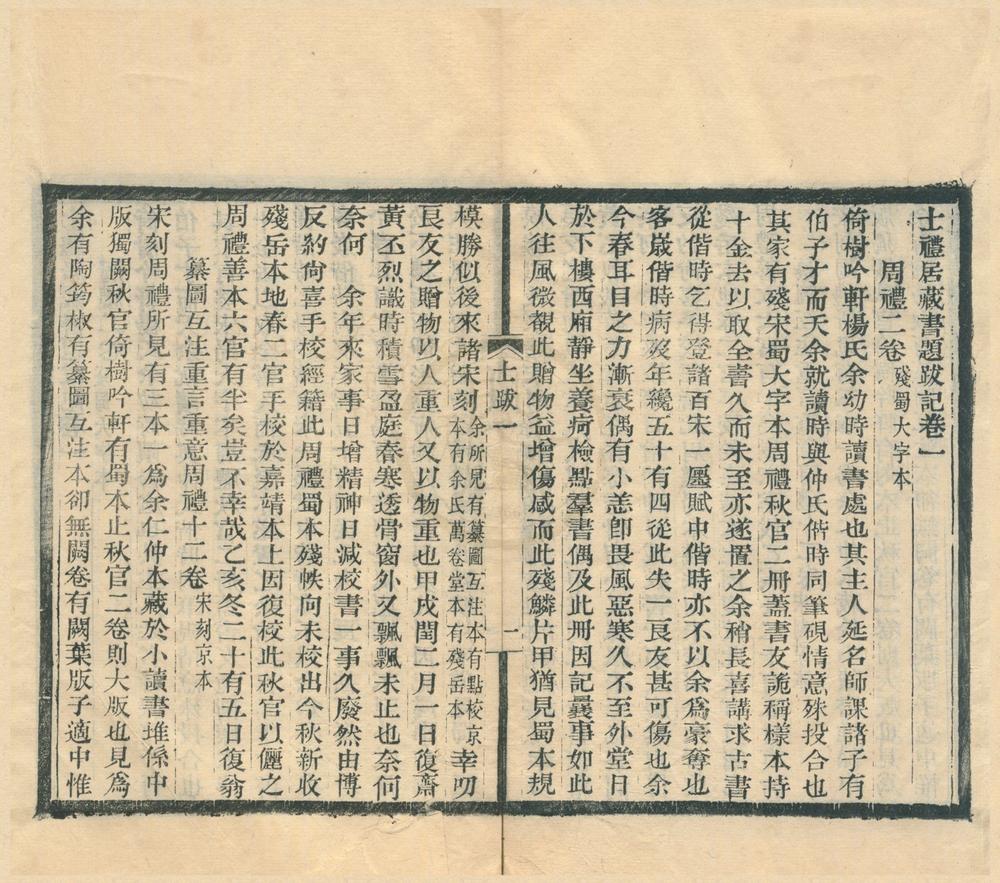 士禮居藏書題跋記卷一
周禮二卷 殘蜀大字本
倚樹吟軒楊氏余幼時讀書處也其主人延名師課諸子有
伯子才而夭余就讀時與仲氏偕時同筆硯情意殊投合也
其家有殘宋蜀大字本周禮秋官二冊蓋書友詭稱樣本持
十金去以取全書久而未至亦遂置之余稍長喜講求古書
從偕時乞得登諸百宋一廛賦中偕時亦不以余爲豪奪也
客嵗偕時病歿年纔五十有四從此失一良友甚可傷也余
今春耳目之力漸衰偶有小恙卽畏風惡寒久不至外堂日
於下樓西廂靜坐養疴檢點羣書偶及此冊因記曩事如此
人往風微覩此贈物益增傷感而此殘鱗片甲猶見蜀本規
士跋一
一
模勝似後來諸宋刻余所見有纂圖互注本有點校京本有余氏萬卷堂本有殘岳本幸叨
良友之贈物以人重人又以物重也甲戌閏二月一日復齋
黃丕烈識時積雪盈庭春寒透骨窗外又飄飄未止也奈何
奈何　余年來家事日增精神日減校書一事久廢然由博
反約尙喜手校經籍此周禮蜀本殘帙向未校出今秋新收
殘岳本地春二官手校於嘉靖本上因復校此秋官以儷之
周禮善本六官有半矣豈不幸哉乙亥冬二十有五日復翁
纂圖互注重言重意周禮十二卷 宋刻京本
宋刻周禮所見有三本一爲余仁仲本藏於小讀書堆係中
版獨闕秋官倚樹吟軒有蜀本止秋官二卷則大版也見爲
余有陶筠椒有纂圖互注本卻無闕卷有闕葉版子適中惟